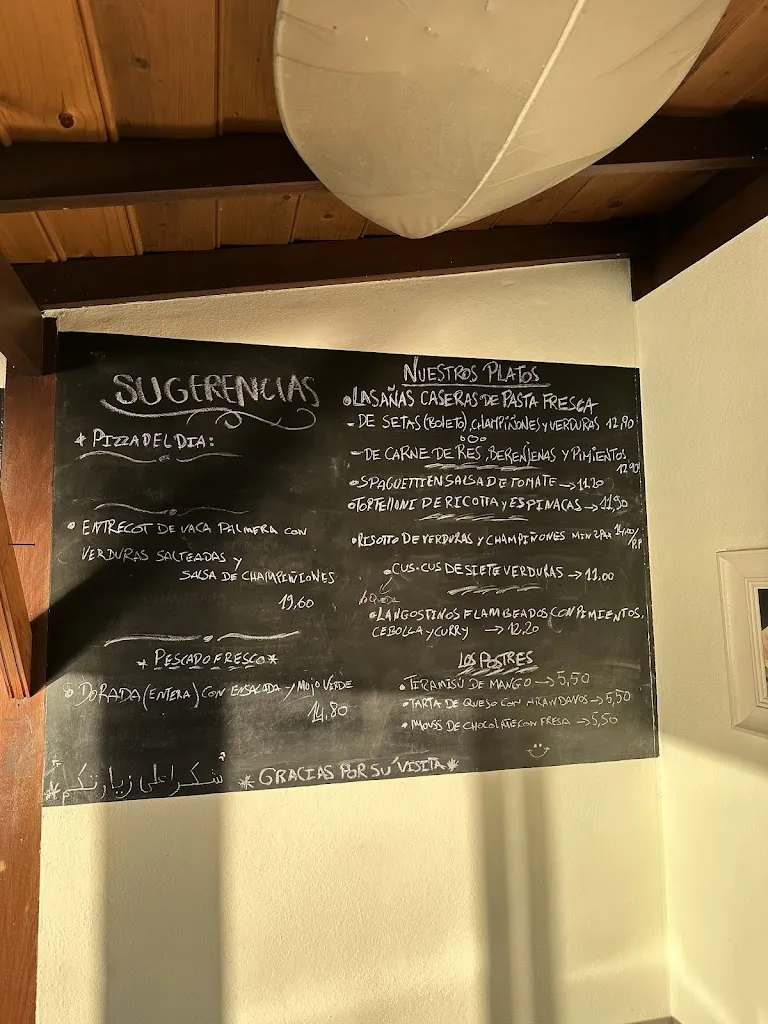 SUGERENCIAS
* PIZZA DEL DIA:
• ENTRECOT DE VACA PALMERA CON
VERDURAS SALTEADAS Y
SALSA DE CHAMPEÑIONES
19,60
* PESCADO FRESCO *
• DORADA (ENTERA) CON ENSALADA Y MOJO VERDE
14,80
* شكرا على زيارتكم *
* GRACIAS POR SU VISITA *
NUESTROS PLATOS
• LASAÑAS CASERAS DE PASTA FRESCA
- DE SETAS (BOLETO), CHAMPIÑONES Y VERDURAS 12,90
- DE CARNE DE RES, BERENJENAS Y PIMIENTOS
12,90
• SPAGUETTI EN SALSA DE TOMATE → 11,20
• TORTELLONI DE RICOTTA Y ESPINACAS → 11,90
• RISOTTO DE VERDURAS Y CHAMPIÑONES MIN 2 PAX 14,00/P.P
• CUS-CUS DE SIETE VERDURAS → 11,00
• LANGOSTINOS FLAMBEADOS CON PIMIENTOS,
CEBOLLA Y CURRY → 12,20
LOS POSTRES
• TIRAMISÚ DE MANGO → 5,50
• TARTA DE QUESO CON ARANDANOS → 5,50
• MOUSS DE CHOCOLATE CON FRESA → 5,50